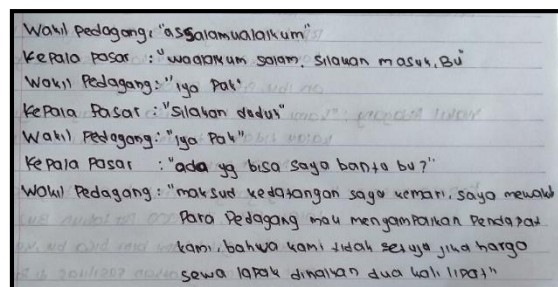 Wakil Pedagang: "assalamualaikum"
Kepala pasar : "waalaikum salam, silakan masuk, Bu"
Wakil Pedagang: "iya Pak"
Kepala Pasar : "silahan duduk"
Wakil Pedagang: "iya Pak"
Kepala Pasar : "ada yg bisa saya bantu bu?"
Wakil Pedagang: "maksud kedatangan saya kemari, saya mewakili
Para Pedagang mau menyampaikan Pendapat
kami, bahwa kami tidak setuju jika harga
sewa lapak dinaikan dua kali lipat"